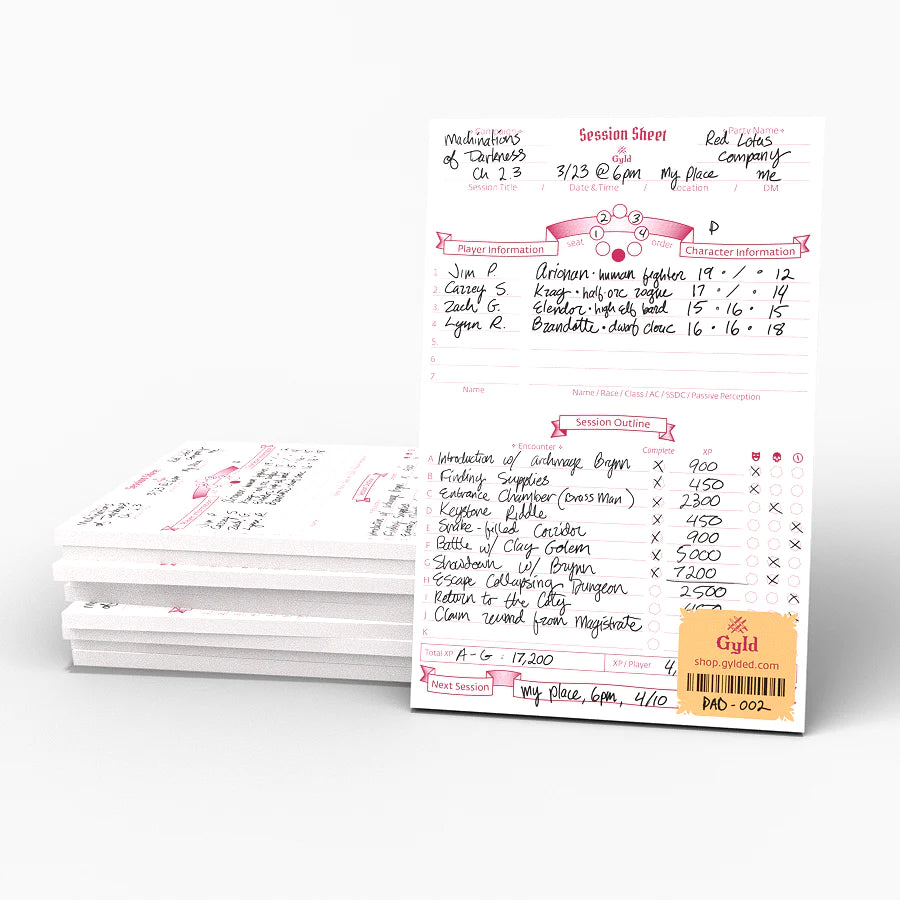 Campaign
Session Sheet
Party Name
Machinations
of Darkness
Ch 2.3
Gyld
3/23 @ 6pm
My Place
Red Lotus
Company
me
Session Title / Date & Time / Location / DM
2 3
1 4
seat order
P
Player Information
Character Information
1 Jim P. Arionan · human fighter 19 · / · 12
2 Carrey S. Krag · half-orc rogue 17 · / · 14
3 Zach G. Elendor · high elf bard 15 · 16 · 15
4 Lynn R. Brandotte · dwarf cleric 16 · 16 · 18
5
6
7
Name
Name / Race / Class / AC / SSDC / Passive Perception
Session Outline
Encounter Complete XP
A Introduction w/ archmage Brynn X 900 X
B Finding Supplies X 450 X
C Entrance Chamber (Brass Man) X 2300 X
D Keystone Riddle X 450 X
E Snake-filled Corridor X 900 X
F Battle w/ Clay Golem X 5000 X
G Showdown w/ Brynn X 7200 X
H Escape Collapsing Dungeon 2500 X
I Return to the City 450
J Claim reward from Magistrate
K
Total XP A-G : 17,200 XP / Player 4,
Next Session my place, 6pm, 4/10
Gyld
shop.gylded.com
PAD-002